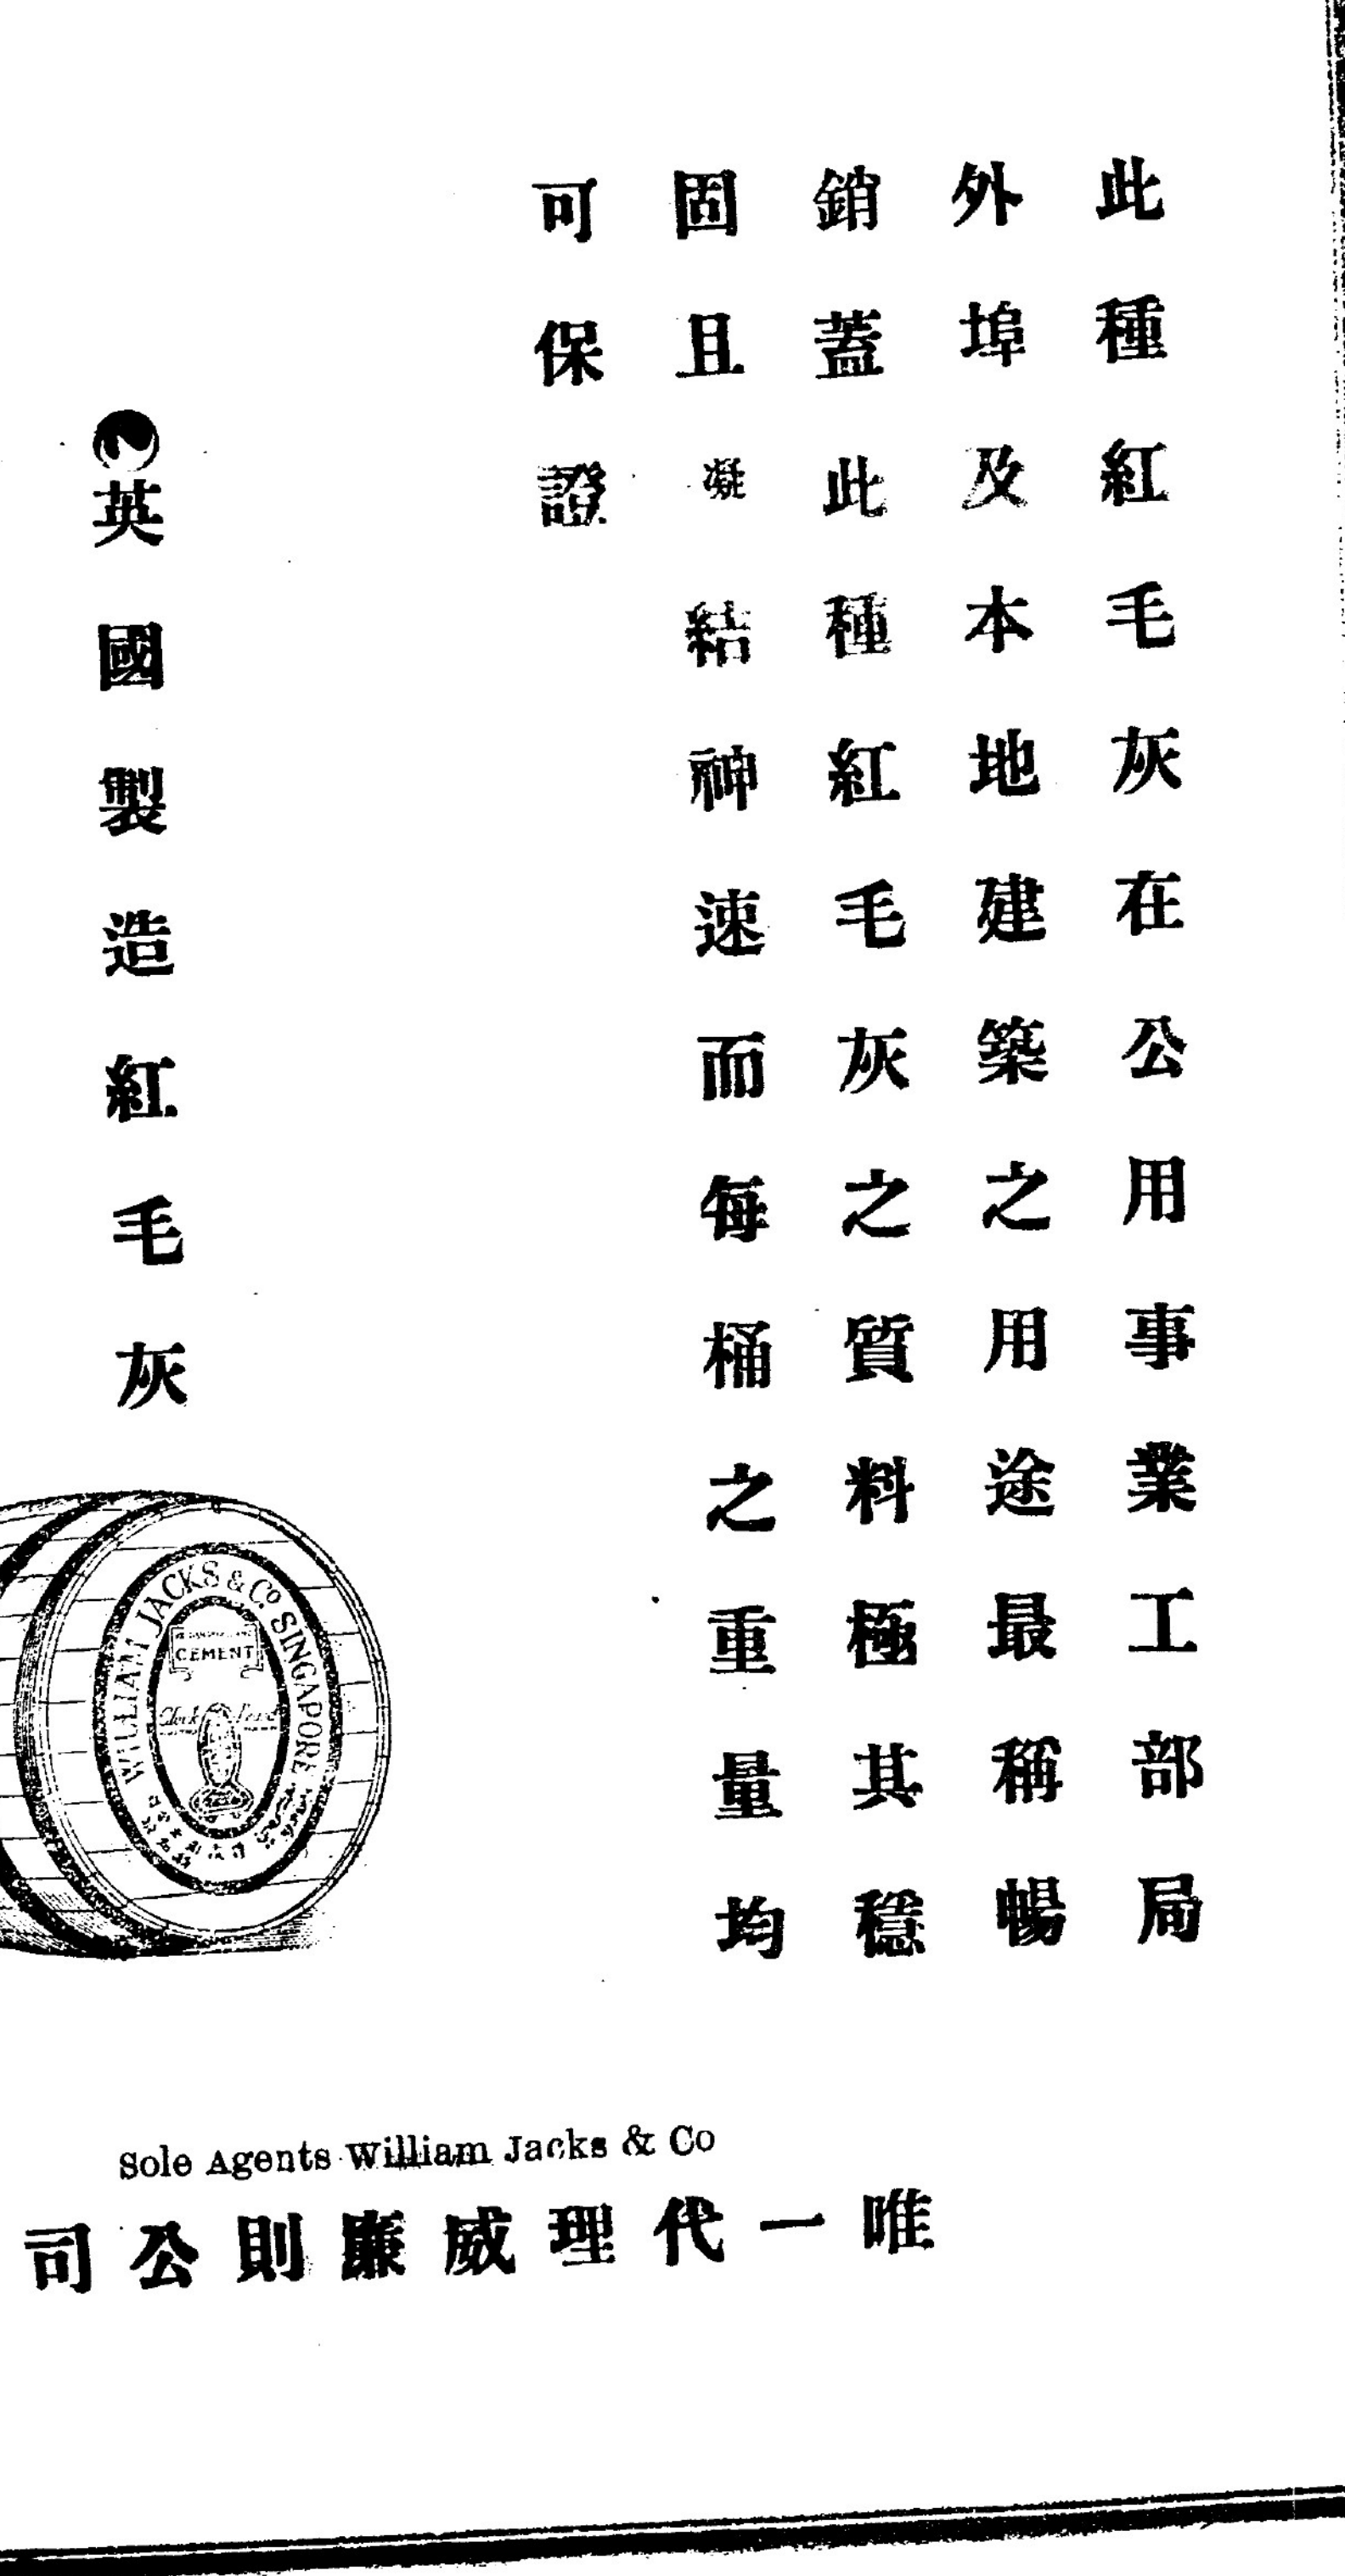 此種紅毛灰在公用事業工部局
外埠及本地建築之用途最稱暢
銷蓋此種紅毛灰之質料極其穩
固且凝結神速而每桶之重量均
可保證
英國製造紅毛灰
WILLIAM JACKS & CO. SINGAPORE
CEMENT
Sole Agents William Jacks & Co
唯一代理威廉則公司